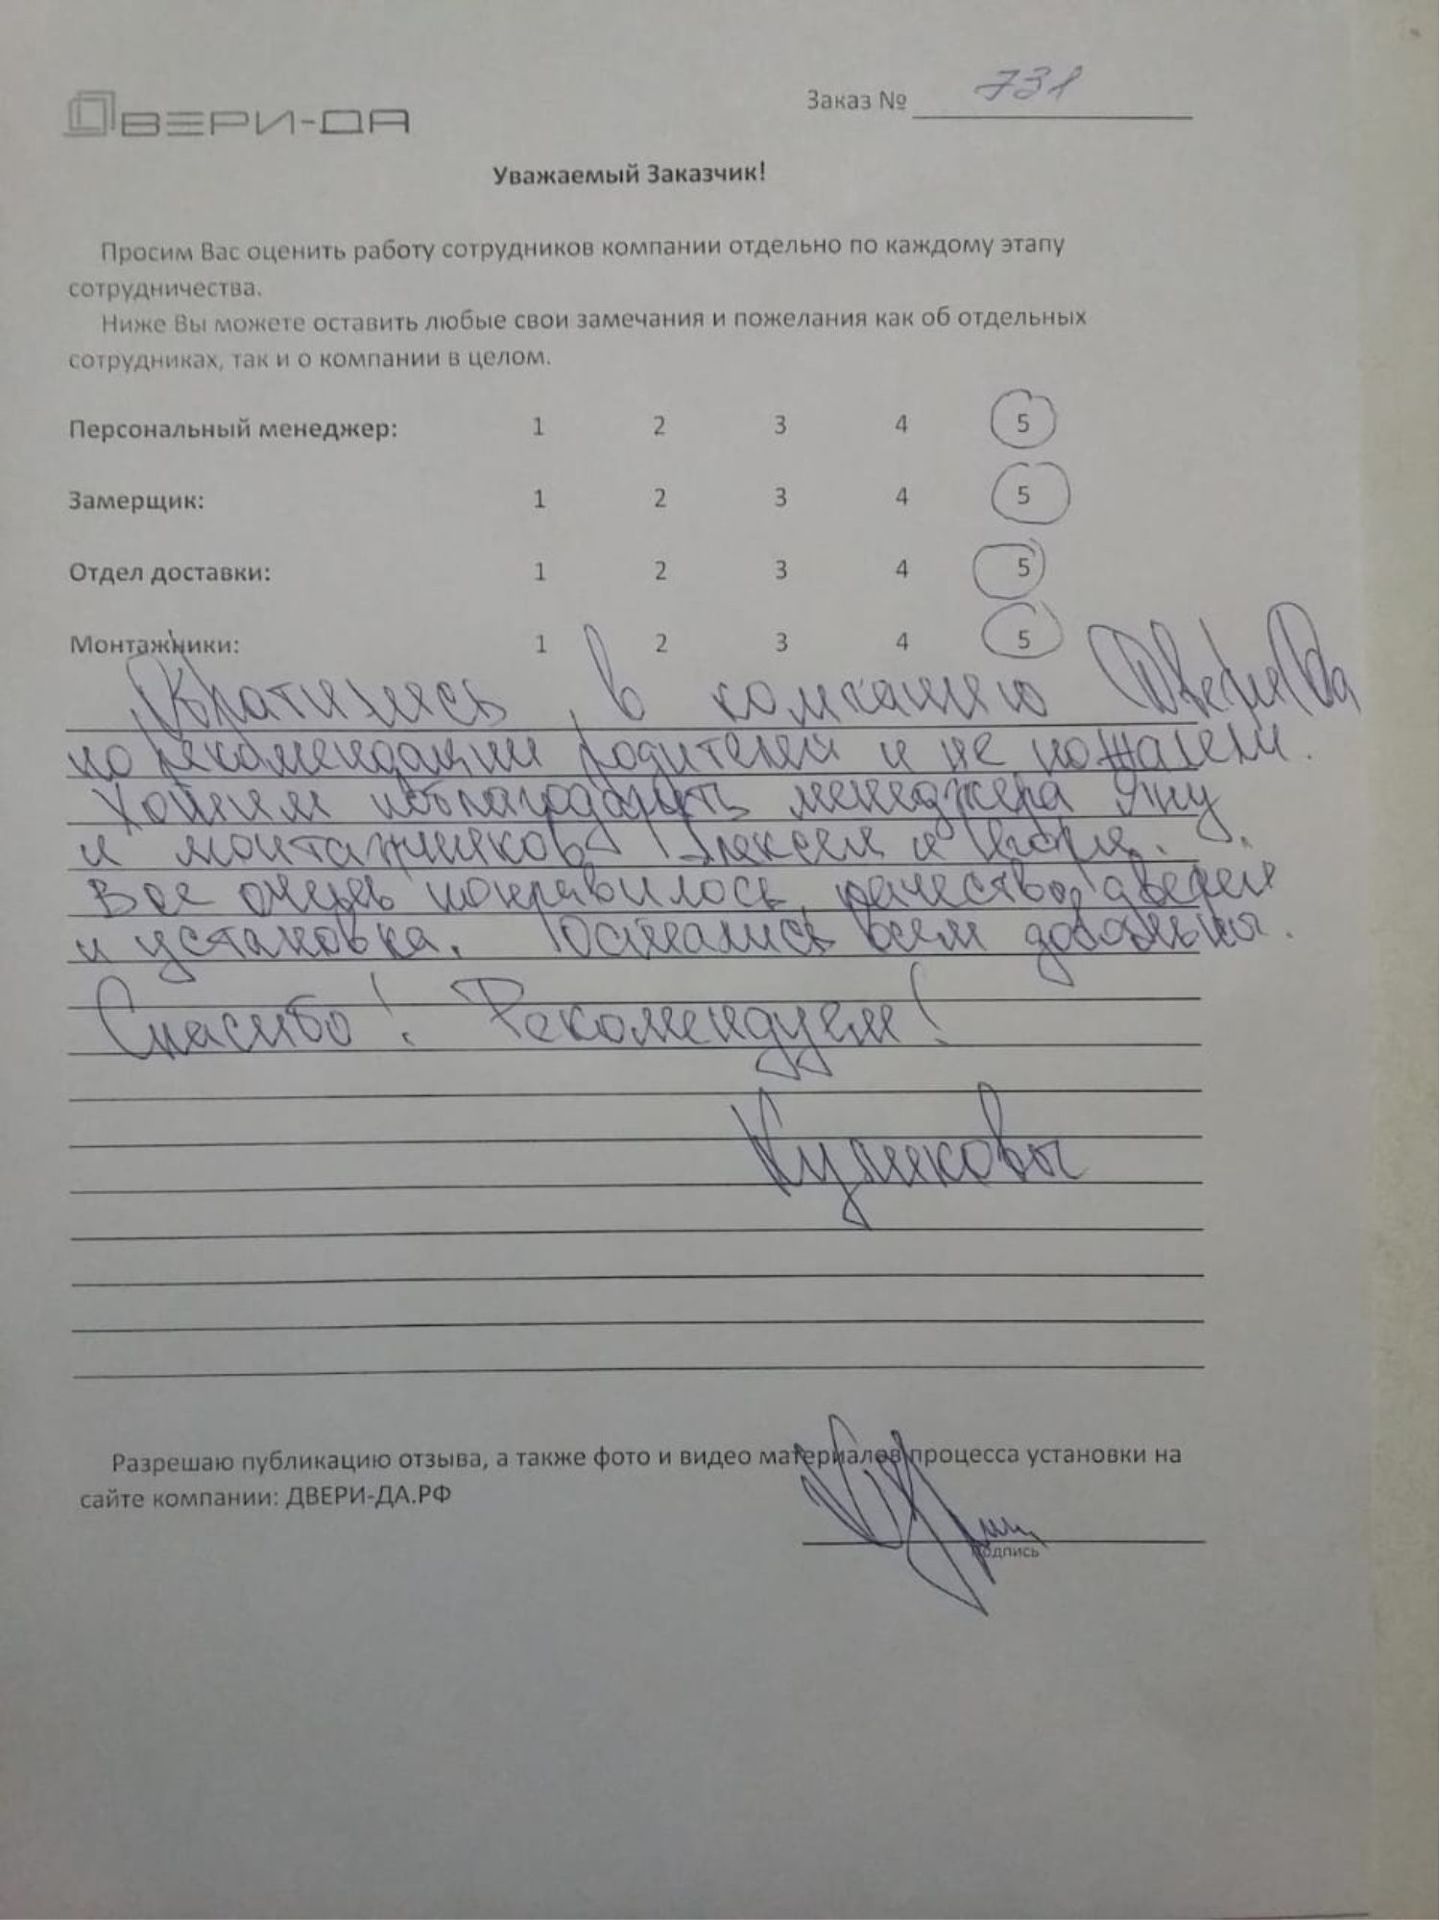 ДВЕРИ-ДА
Заказ № 731
Уважаемый Заказчик!
Просим Вас оценить работу сотрудников компании отдельно по каждому этапу
сотрудничества.
Ниже Вы можете оставить любые свои замечания и пожелания как об отдельных
сотрудниках, так и о компании в целом.
Персональный менеджер: 1 2 3 4 5
Замерщик: 1 2 3 4 5
Отдел доставки: 1 2 3 4 5
Монтажники: 1 2 3 4 5
Обратились в компанию Двери Да
по рекомендации родителей и не пожалели.
Хотим поблагодарить менеджера Яну
и монтажников Алексея и Игоря.
Все очень понравилось, качество дверей
и установка. Остались всем довольны.
Спасибо! Рекомендуем!
Куликовы
Разрешаю публикацию отзыва, а также фото и видео материалов процесса установки на
сайте компании: ДВЕРИ-ДА.РФ
подпись